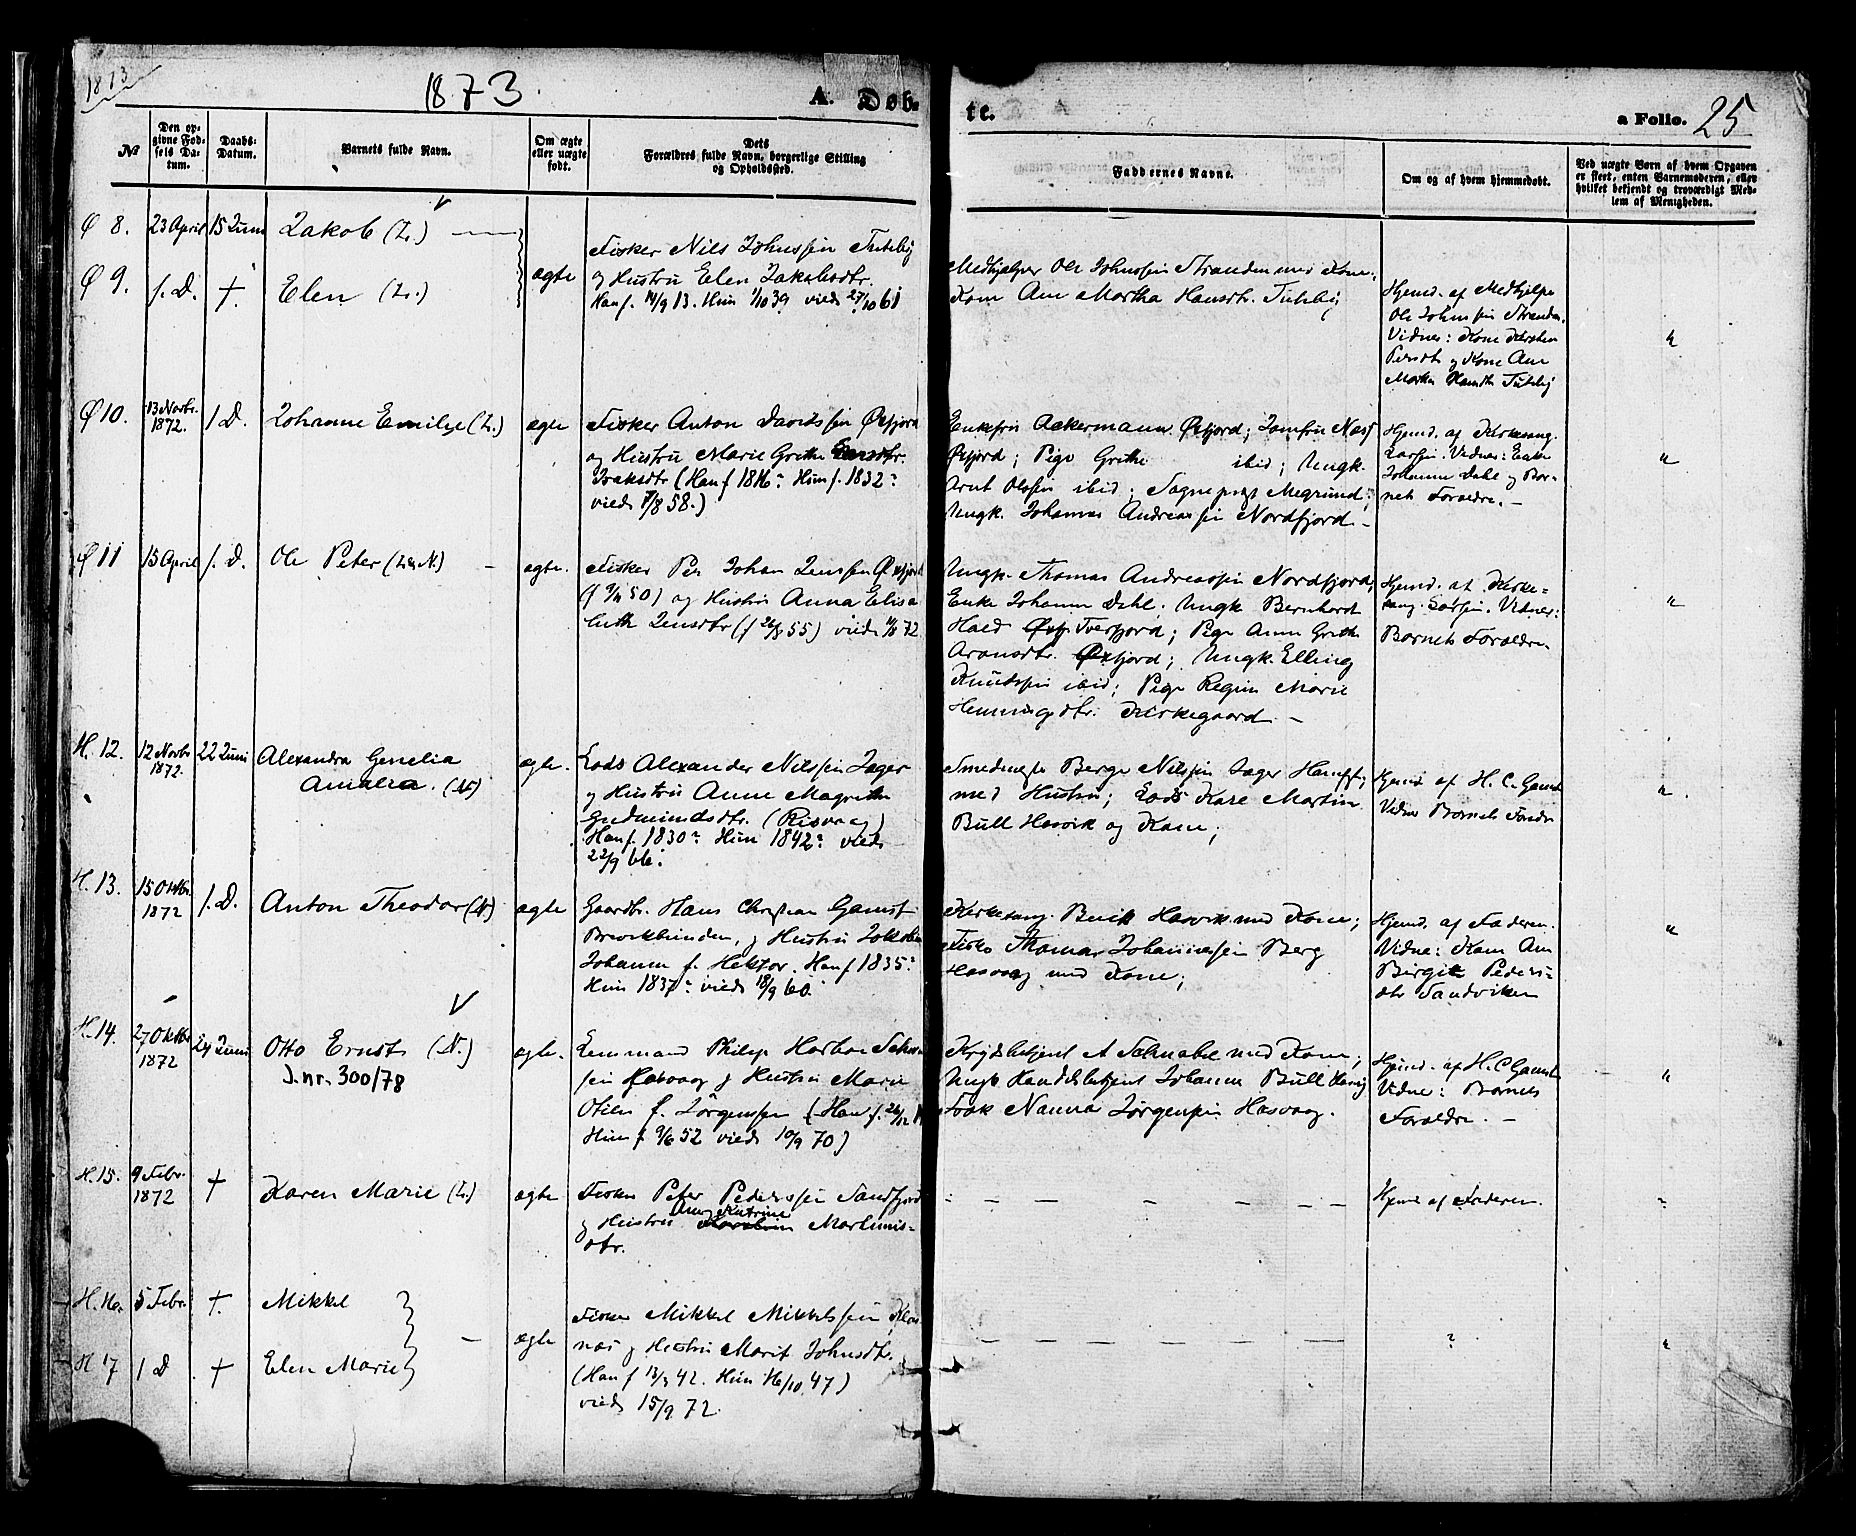 1873
1873.
A. Døb-
te.
a Folio. 25
№
Den op-
givne Fød-
sels Da-
tum.
Daabs-
Datum.
Barnets fulde Navn.
Om ægte
eller uægte
født.
Dets
Forældres fulde Navn, borgerlige Stilling
og Opholdssted.
Faddernes Navne.
Om og af hvem hjemmedøbt.
Ved uægte Børn af hvem Opgaven
er skeet, enten Barnemoderen, eller
hvilket bekjendt og troværdigt Med-
lem af Menigheden.
Ø 8. 23 April 15 Juni Jakob (L.)
Ø 9. s. D. +. Elen (L.)
ægte
Fisker Nils Johnssen
og Hustru Elen Jakobsdtr.
Han f. 14/9 13. Hun 1/10 39 viede 27/10 61
Medhjælper Ole Johnssen Stranden med Kone;
Kone Ane Martha Hansdtr.
Hjemd. af Medhjelper
Ole Johnssen Stranden.
Vidner: Kone Kirsten
Persdtr og Kone Ane
Martha Hansdtr
"
Ø 10. 13 Novbr. 1872. s D. Johanne Emilie (L.) ægte
Fisker Anton Davidssen Øxfjord
og Hustru Marie Grethe
Isaksdtr (Han f 1816? Hun f. 1832?
viede 7/8 58.)
Enkefru Ackermann Øxfjord; Jomfru
Øxfjord; Pige Grethe ibid; Ungk.
Arnt Olssen ibid;
Ungk. Johannes Andreassen Nordfjord -
Hjemd. af Kirkesang.
Larsen. Vidner: Enke
Johanne Dahl og Bar-
nets Forældre. -
"
Ø 11 15 April s. D. Ole Peter (L. N.) - ægte.
Fisker Per Johan Jenssen Øxfjord
50) og Hustru Anna Elisa
beth Jensdtr (f 26/8 55) viede 11/8 72
Ungk. Thomas Andreassen Nordfjord,
Enke Johanne Dahl. Ungk Bernhard
Hald Tverfjord; Pige Anne Grethe
Aronsdtr. Øxfjord; Ungk. Elling
Knudssen ibid; Pige Regine Marie
Henningsdtr. Kirkegaard. -
Hjemd. af Kirke-
sang. Larsen. Vidner:
Barnets Forældre.
"
H. 12. 12 Novbr 1872. 22 Juni Alexandra Genelia
Amalia. (N) ægte.
Lods Alexander Nilssen Jager
og Hustru Anne Magrethe
Gudmundsdtr. (Risvaag)
Han f. 1830? Hun 1842? viede
22/9 66.
Berge Nilssen Jager
med Hustru; Lods Kare Martin
Bull Hasvik og Kone;
Hjemd af H. C. Gamst
Vidner Barnets Forældre
"
H. 13. 15 Oktbr. 1872 s. D. Anton Theodor (N) ægte
Gaardbr. Hans Christian Gamst
Breivikbunden, og Hustru
Johanne f. Hektor. Han f 1835?
Hun 1837? viede 18/9 60.
Kirkesang. Buck Hasvik med Kone;
Fisker Thomas Johannessen Berg
Hasvaag med Kone;
Hjemd. af Faderen.
Vidne: Kone Ane
Birgit Peders-
dtr Sandviken
"
H. 14. 27 Oktbr 1872 24 Juni Otto Ernst (N.)
J.nr. 300/78 ægte.
Lensmand Philip Harboe
Hasvaag og Hustru Marie
Otilie f. Jörgenssen (Han f. 26/12
Hun f 9/6 52 viede 10/9 70)
A Schnabel med Kone;
Ungk Handelsbetjent Johannes Bull Hasvig
Frøk Nanna Jörgensen Hasvaag.
Hjemd. af H. C Gamst
Vidne: Barnets
Forældre. -
"
H. 15. 9 Febr. 1872 + Karen Marie (L.) ægte
Fisker Peter Pederssen Sandfjord
og Hustru Ane Katrine Martinus-
dtr.
Hjemd af Faderen.
"
H. 16. 5 Febr. +. Mikkel
H 17 s D + Elen Marie
ægte
Fisker Mikkel Mikkelssen
og Hustru Marit Johnsdtr.
(Han f 13/3 42. Hun 16/10 47)
viede 15/9 72.
?
"